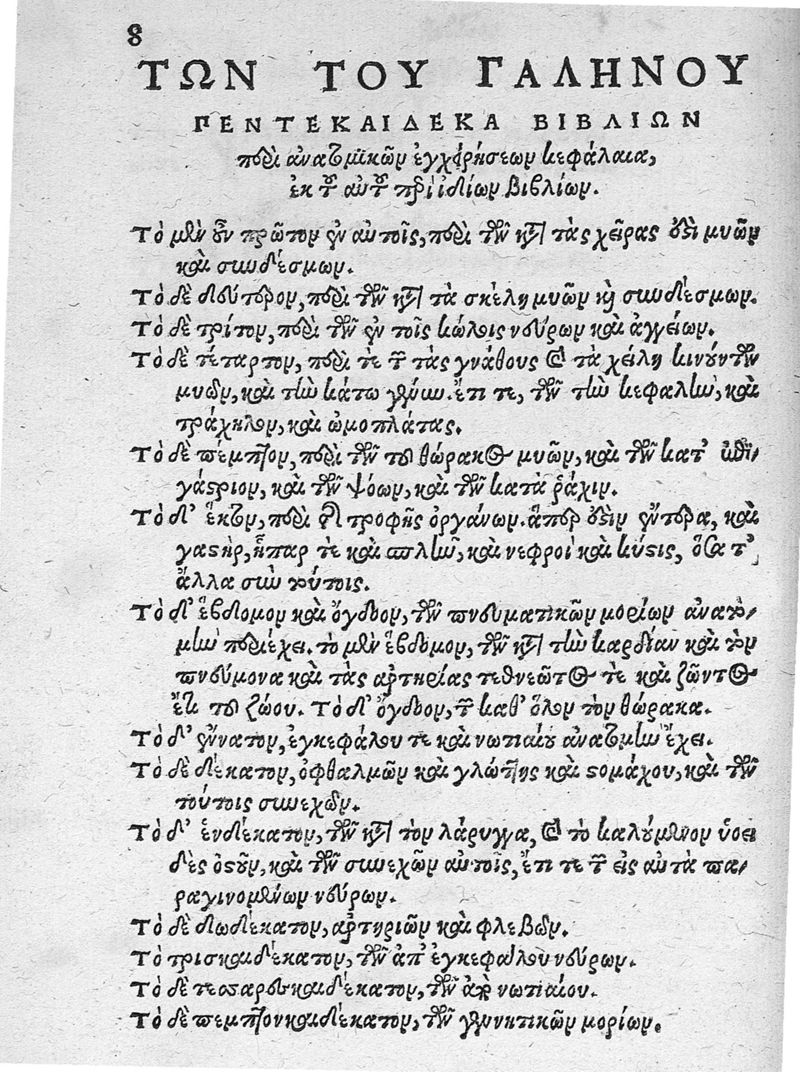 8
ΤΩΝ ΤΟΥ ΓΑΛΗΝΟΥ
ΠΕΝΤΕΚΑΙΔΕΚΑ ΒΙΒΛΙΩΝ
περὶ ἀνατομικῶν ἐγχειρήσεων κεφάλαια,
ἐκ τῶν αὐτοῦ περὶ ἰδίων βιβλίων.
Τὸ μὲν οὖν πρῶτον ἐν αὐτοῖς, περὶ τῶν κατὰ τὰς χεῖρας ἐστὶ μυῶν
καὶ συνδέσμων.
Τὸ δὲ δεύτερον, περὶ τῶν κατὰ τὰ σκέλη μυῶν καὶ συνδέσμων.
Τὸ δὲ τρίτον, περὶ τῶν ἐν τοῖς κώλοις νεύρων καὶ ἀγγείων.
Τὸ δὲ τέταρτον, περί τε τῶν τὰς γνάθους καὶ τὰ χείλη κινούντων
μυῶν, καὶ τὴν κάτω γένυν. ἔτι τε, τῶν τὴν κεφαλὴν, καὶ
τράχηλον, καὶ ὠμοπλάτας.
Τὸ δὲ πέμπτον, περὶ τῶν τοῦ θώρακος μυῶν, καὶ τῶν κατ' ἐπι-
γάστριον, καὶ τῶν ψόων, καὶ τῶν κατὰ ῥάχιν.
Τὸ δ' ἕκτον, περὶ τῶν τροφῆς ὀργάνων. ἅπερ ἐστὶν ἔντερα, καὶ
γαστὴρ, ἧπαρ τε καὶ σπλὴν, καὶ νεφροὶ καὶ κύστις, ὅσα τ'
ἄλλα σὺν τούτοις.
Τὸ δ' ἕβδομον καὶ ὄγδοον, τῶν πνευματικῶν μορίων ἀνατο-
μὴν περιέχει. τὸ μὲν ἕβδομον, τῶν κατὰ τὴν καρδίαν καὶ τὸν
πνεύμονα καὶ τὰς ἀρτηρίας τεθνεῶτος τε καὶ ζῶντος
ἔτι τοῦ ζώου. Τὸ δ' ὄγδοον, τῶν καθ' ὅλον τὸν θώρακα.
Τὸ δ' ἔννατον, ἐγκεφάλου τε καὶ νωτιαίου ἀνατομὴν ἔχει.
Τὸ δὲ δέκατον, ὀφθαλμῶν καὶ γλώττης καὶ στομάχου, καὶ τῶν
τούτοις συνεχῶν.
Τὸ δ' ἑνδέκατον, τῶν κατὰ τὸν λάρυγγα, καὶ τὸ καλούμενον ὑοει
δὲς ὀστοῦν, καὶ τῶν συνεχῶν αὐτοῖς, ἔτι τε τῶν εἰς αὐτὰ πα-
ραγινομένων νεύρων.
Τὸ δὲ δωδέκατον, ἀρτηριῶν καὶ φλεβῶν.
Τὸ τρισκαιδέκατον, τῶν ἀπ' ἐγκεφάλου νεύρων.
Τὸ δὲ τεσσαρεσκαιδέκατον, τῶν ἀπὸ νωτιαίου.
Τὸ δὲ πεμπτονκαιδέκατον, τῶν γεννητικῶν μορίων.